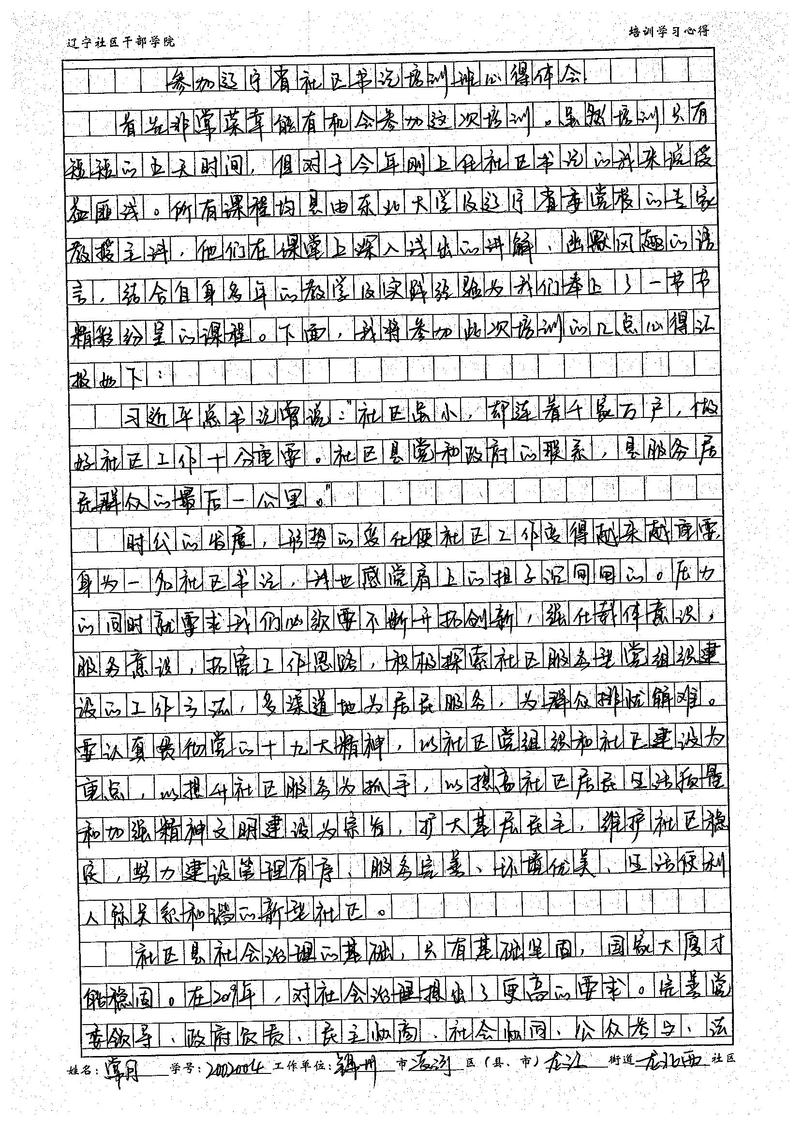 辽宁社区干部学院 培训学习心得
参加辽宁省社区书记培训班心得体会
首先非常荣幸能有机会参加这次培训。虽然培训只有
短短的五天时间，但对于今年刚上任社区书记的我来说受
益匪浅。所有课程均是由东北大学及辽宁省委党校的专家
教授主讲，他们在课堂上深入浅出的讲解、幽默风趣的语
言，结合自身多年的教学及实践经验为我们奉上了一节节
精彩纷呈的课程。下面，我将参加此次培训的几点心得汇
报如下：
习近平总书记曾说："社区虽小，却连着千家万户，做
好社区工作十分重要。社区是党和政府的联系，是服务居
民群众的最后一公里。"
时代的发展，形势的变化使社区工作变得越来越重要
身为一名社区书记，我也感觉肩上的担子沉甸甸的。压力
的同时就要求我们必须要不断开拓创新，强化载体意识，
服务意识，拓宽工作思路，积极探索社区服务型党组织建
设的工作方法，多渠道地为居民服务，为群众排忧解难。
要认真贯彻党的十九大精神，以社区党组织和社区建设为
重点，以提升社区服务为抓手，以提高社区居民生活质量
和加强精神文明建设为宗旨，扩大基层民主，维护社区稳
定，努力建设管理有序、服务完善、环境优美、生活便利
人际关系和谐的新型社区。
社区是社会治理的基础，只有基础坚固，国家大厦才
能稳固。在2019年，对社会治理提出了更高的要求。完善党
委领导、政府负责、民主协商、社会协同、公众参与、法
姓名： 常月 学号：2002004 工作单位：锦州 市 凌河 区（县、市） 龙江 街道 龙北西 社区